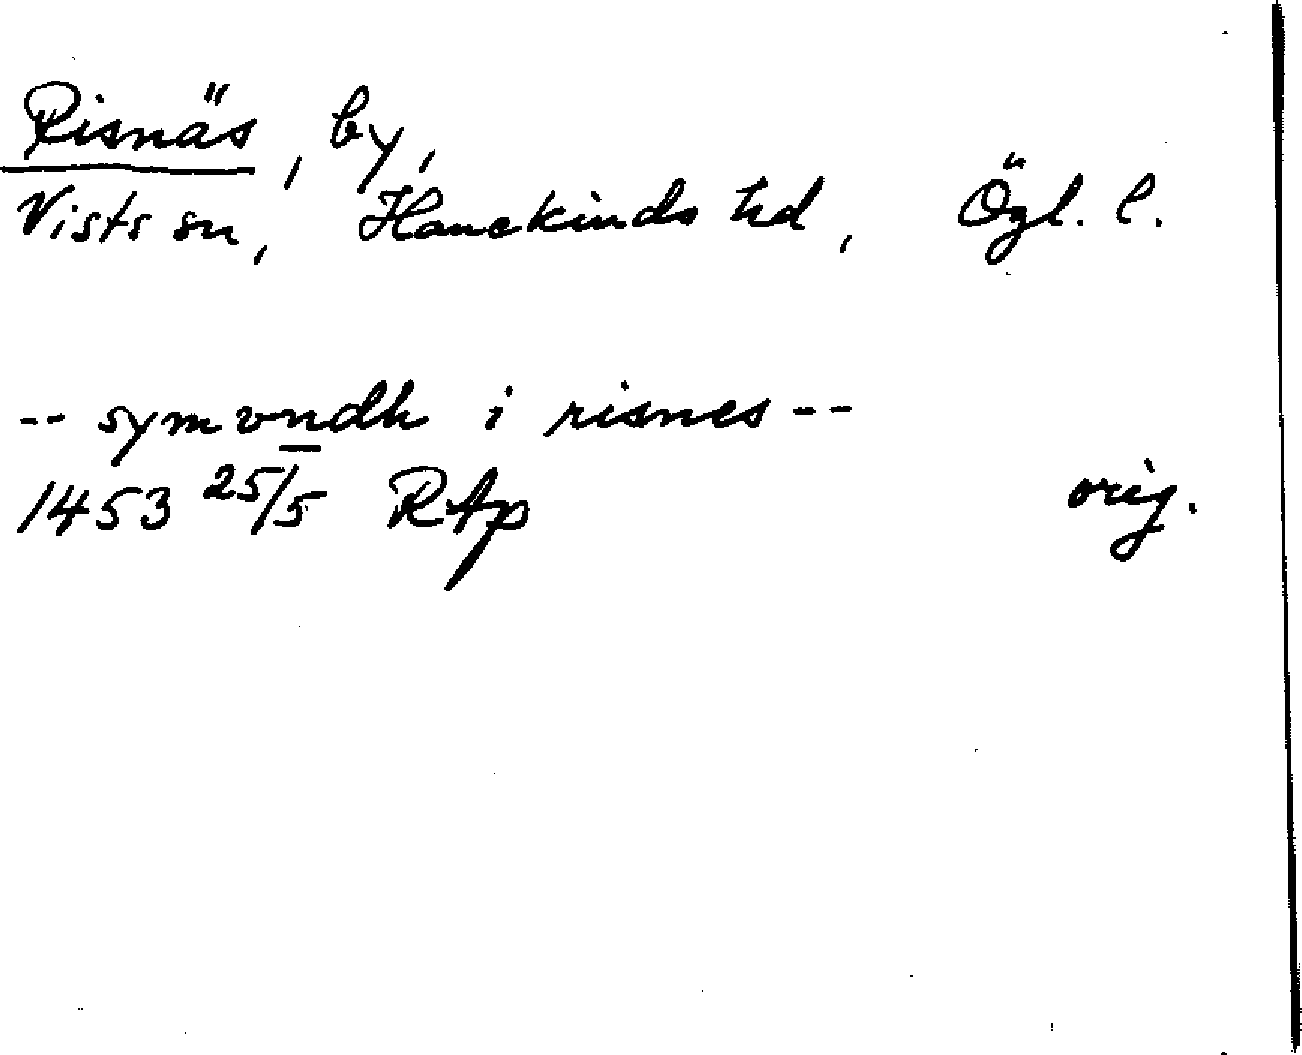 Risnäs, by,
Vists sn, Hanekinds hd, Ögl. l.
-- symvndh i risnes --
1453 25/5 RAp orig.